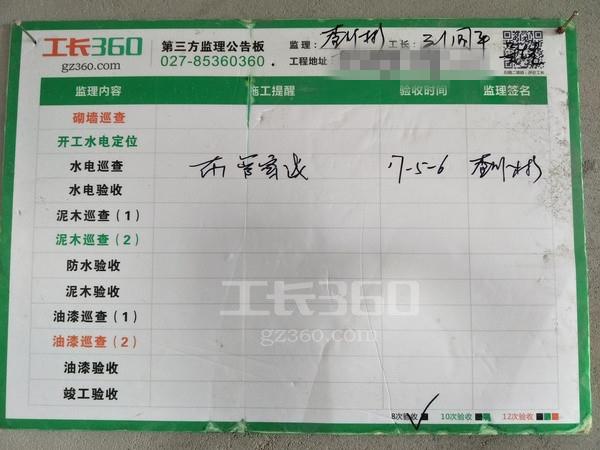 工长360
gz360.com
第三方监理公告板
027-85360360
监理：
工长：
工程地址：
监理内容 施工提醒 验收时间 监理签名
砌墙巡查
开工水电定位
水电巡查 17-5-6
水电验收
泥木巡查（1）
泥木巡查（2）
防水验收
泥木验收
油漆巡查（1）
油漆巡查（2）
油漆验收
竣工验收
工长360
gz360.com
8次验收 10次验收 12次验收